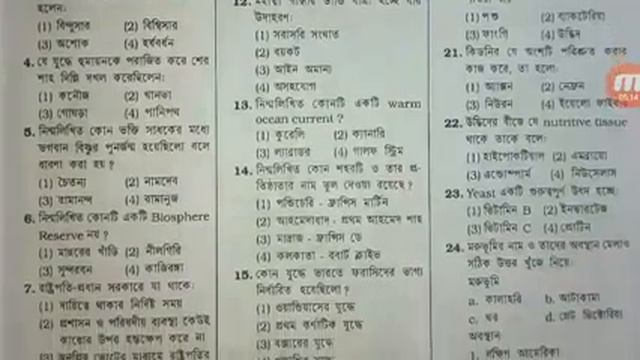 হলেন:
(1) বিন্দুসার (2) বিম্বিসার
(3) অশোক (4) হর্ষবর্ধন
4. যে যুদ্ধে হুমায়নকে পরাজিত করে শের
শাহ দিল্লি দখল করেছিলেন:
(1) কনৌজ (2) খানওা
(3) গোগড়া (4) পানিপথ
5. নিম্নলিখিত কোন ভক্তি সাধকের মধ্যে
ভগবান বিষ্ণুর পুনর্জন্ম হয়েছিলো বলে
ধারণা করা হয় ?
(1) চৈতন্য (2) নামদেব
(3) রামানন্দ (4) রামানুজ
6. নিম্নলিখিত কোনটি একটি Biosphere
Reserve নয় ?
(1) মান্নারের খাঁড়ি (2) নীলগিরি
(3) সুন্দরবন (4) কাজিরঙ্গা
7. রাষ্ট্রপতি-প্রধান সরকারে যা থাকে:
(1) দায়িত্বে থাকার নির্দিষ্ট সময়
(2) প্রশাসন ও পরিষদীয় ব্যবস্থা কেউই
কারোর উপর হস্তক্ষেপ করে না
(3) রাষ্ট্রপতির
12.
উদাহরণ:
(1) সরাসরি সংঘাত
(2) বয়কট
(3) আইন অমান্য
(4) অসহযোগ
13. নিম্নলিখিত কোনটি একটি warm
ocean current ?
(1) কুরেলি (2) ক্যানারি
(3) ল্যাব্রাডর (4) গালফ স্ট্রিম
14. নিম্নলিখিত কোন শহরটি ও তার প্র-
তিষ্ঠাতার নাম ভুল দেওয়া রয়েছে ?
(1) পন্ডিচেরি - ফ্রান্সিস মার্টিন
(2) আহমেদাবাদ - প্রথম আহমেদ শাহ
(3) মাদ্রাজ - ফ্রান্সিস ডে
(4) কলকাতা - রবার্ট ক্লাইভ
15. কোন যুদ্ধে ভারতে ফরাসিদের ভাগ্য
নির্ধারিত হয়েছিলো ?
(1) ওয়ান্ডিয়াসের যুদ্ধে
(2) প্রথম কর্ণাটিক যুদ্ধে
(3) বক্সারের যুদ্ধে
(1) পশু (2) ব্যাকটেরিয়া
(3) ফাংগি (4) উদ্ভিদ
21. কিডনির যে অংশটি পরিশ্রুত করার
কাজ করে, তা হলো:
(1) অ্যাক্সন (2) নেফ্রন
(3) নিউরন (4) ইয়েলো ফাইবার
05:14
22. উদ্ভিদের বীজে যে nutritive tissue
থাকে তাকে বলে:
(1) হাইপোকটিয়াল (2) এমব্রায়ো
(3) এন্ডোস্পার্ম (4) নিউসেলাস
23. Yeast একটি গুরুত্বপূর্ণ উৎস হচ্ছে:
(1) ভিটামিন B (2) ইনভারটেজ
(3) ভিটামিন C (4) প্রোটিন
24. মরুভূমির নাম ও তাদের অবস্থান মেলাও
সঠিক উত্তর খুঁজে নিয়ে:
মরুভূমি
a. কালাহারি b. আটাকামা
c. থর d. গ্রেট ভিক্টোরিয়া
অবস্থান
1. দক্ষিণ আমেরিকা